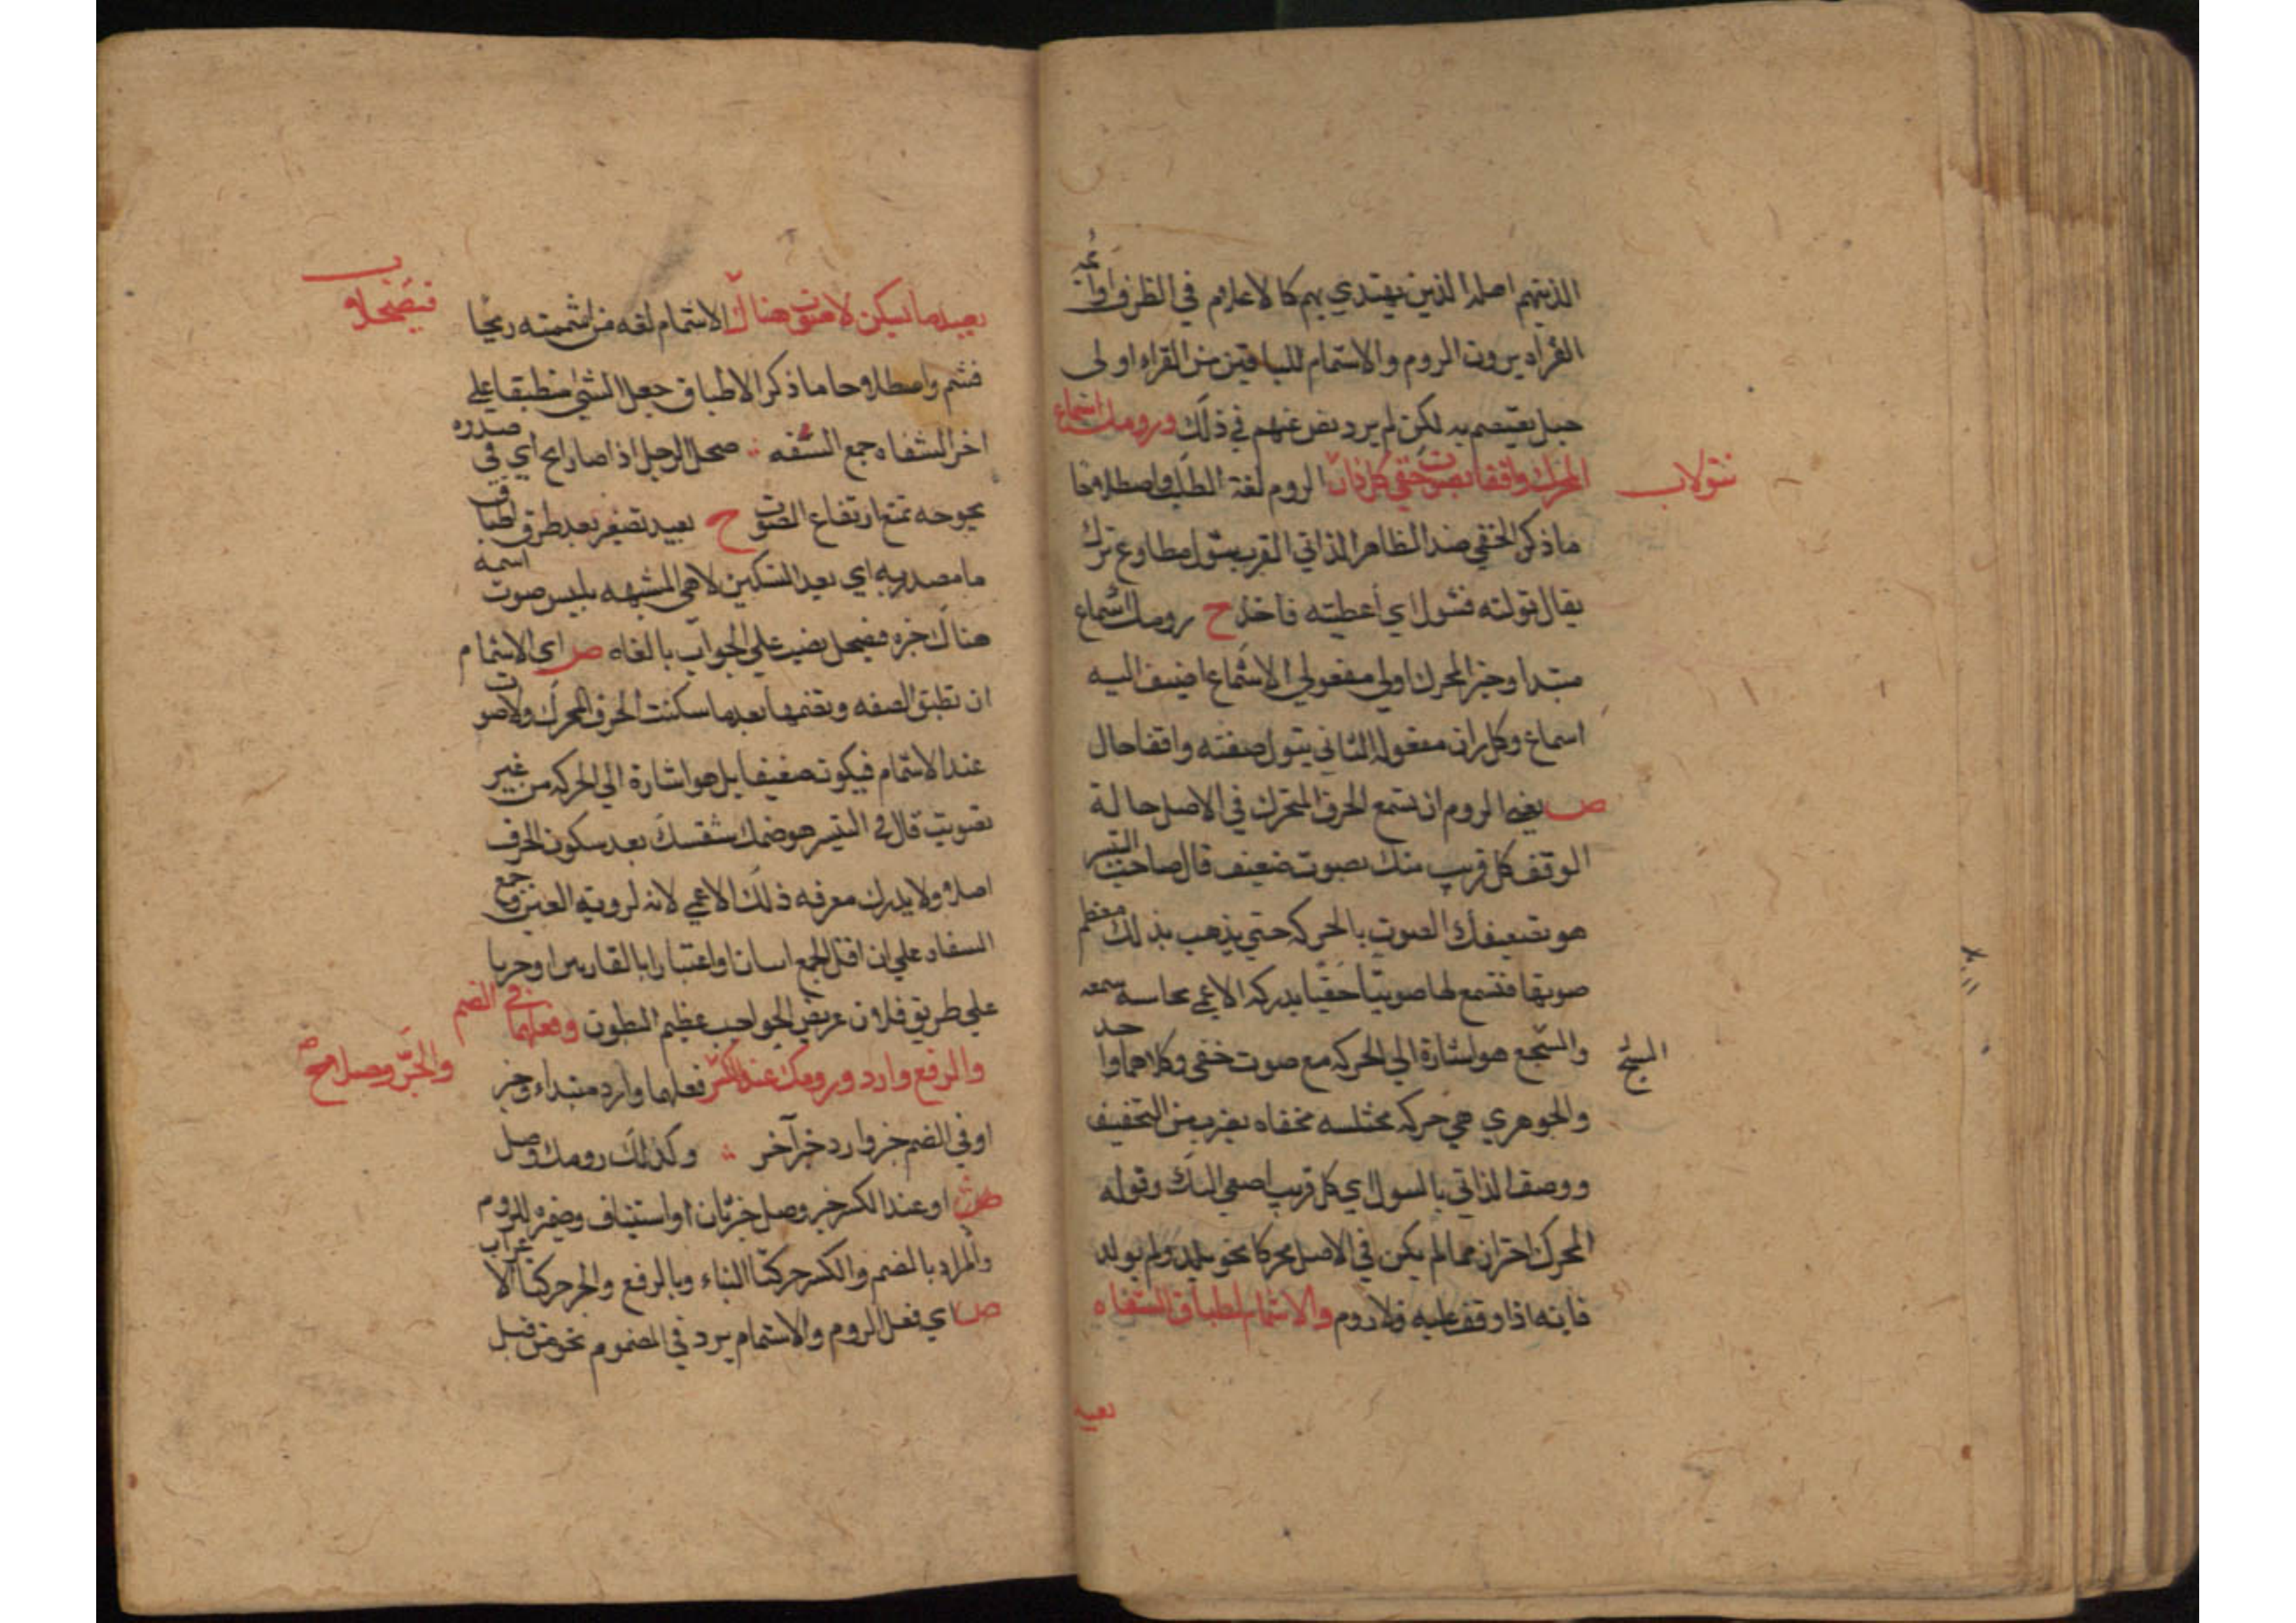 الذينهم اصلا الذين يهتدي بهم كالاعلام في الطرف وائمه
القراء يرون الروم والاشمام للباقين من القراء اولى
حبل يعتصم به لكن لم يرد نص عنهم في ذلك ورومك اسماع
المحرك واقفا بصوت خفي كل دان الروم لغة الطلب واصطلاحا
تنولا ب
ماذكر الخفي ضد الظاهر الداني القرب تنول مطاوع ترك
يقال نولته فتنول اي أعطيته فاخذ ح رومك اسماع
مبتدا وخبر المحرك اولى مفعولي الاسماع اضيف اليه
اسماع وكل دان مفعوله الثاني تنول صفته واقفا حال
ص يعني الروم ان تسمع الحرف المتحرك في الاصل حالة
الوقف كل قريب منك بصوت ضعيف قال صاحب التيسير
هو تضعيفك الصوت بالحركه حتي يذهب بذلك معظم
صوتها فتسمع لها صويتا خفيا يدركه الاعمي بحاسة سمعه
والشيخ هو اشارة الي الحركه مع صوت خفي وكلاهما واحد
الشيخ
والجوهري هي حركه مختلسه مخفاه بضرب من التخفيف
ووصف الداني بالسول اي كل قريب اصغي اليك وقوله
المحرك احتراز مما لم يكن في الاصل محركا نحو يلد ولم يولد
فانه اذا وقف عليه فلا روم والاشمام اطباق الشفاه
بعيد
بعيد ما يسكن لا صوت هناك الاشمام لغه من اشممته ريحا
فيصحلا ب
فشم واصطلاحا ما ذكر الاطباق جعل الشئ منطبقا علي
اخر الشفاه جمع الشفه صحل الرجل اذا صار ابح اي في صدره
بحوحه تمنع ارتفاع الصوت ح بعيد تصغير بعد ظرف اطباق
ما مصدريه اي بعيد التسكين لا هي المشبهه بليس صوت اسمه
هناك خبره فيصحل نصب علي الجواب بالفاء ص اي الاشمام
ان تطبق الشفه وتضمها بعد ما سكنت الحرف المحرك ولا صوت
عند الاشمام فيكون ضعيفا بل هو اشارة الي الحركه من غير
تصويت قال في التيسير هو ضمك شفتيك بعد سكون الحرف
اصلا ولا يدرك معرفه ذلك الاعمي لانه لروية العين وجمع
الشفاه علي ان اقل الجمع اثنان او اعتبارا بالقاريين او جريا
علي طريق فلان عريض الحواجب عظيم البطون وفعلهما في الضم
والرفع وارد ورومك عند الكسر فعلهما وارد مبتداء وخبر
والجر وصلا مح
او في الضم خبر وارد خبر آخر وكذلك رومك وصل
ص او عند الكسر خبر وصل خبر ثان او استيناف وضميره للروم
والمراد بالضم والكسر حركتا البناء وبالرفع والجر حركتا الاعراب
ص اي فعل الروم والاشمام يرد في المضموم نحو من قبل